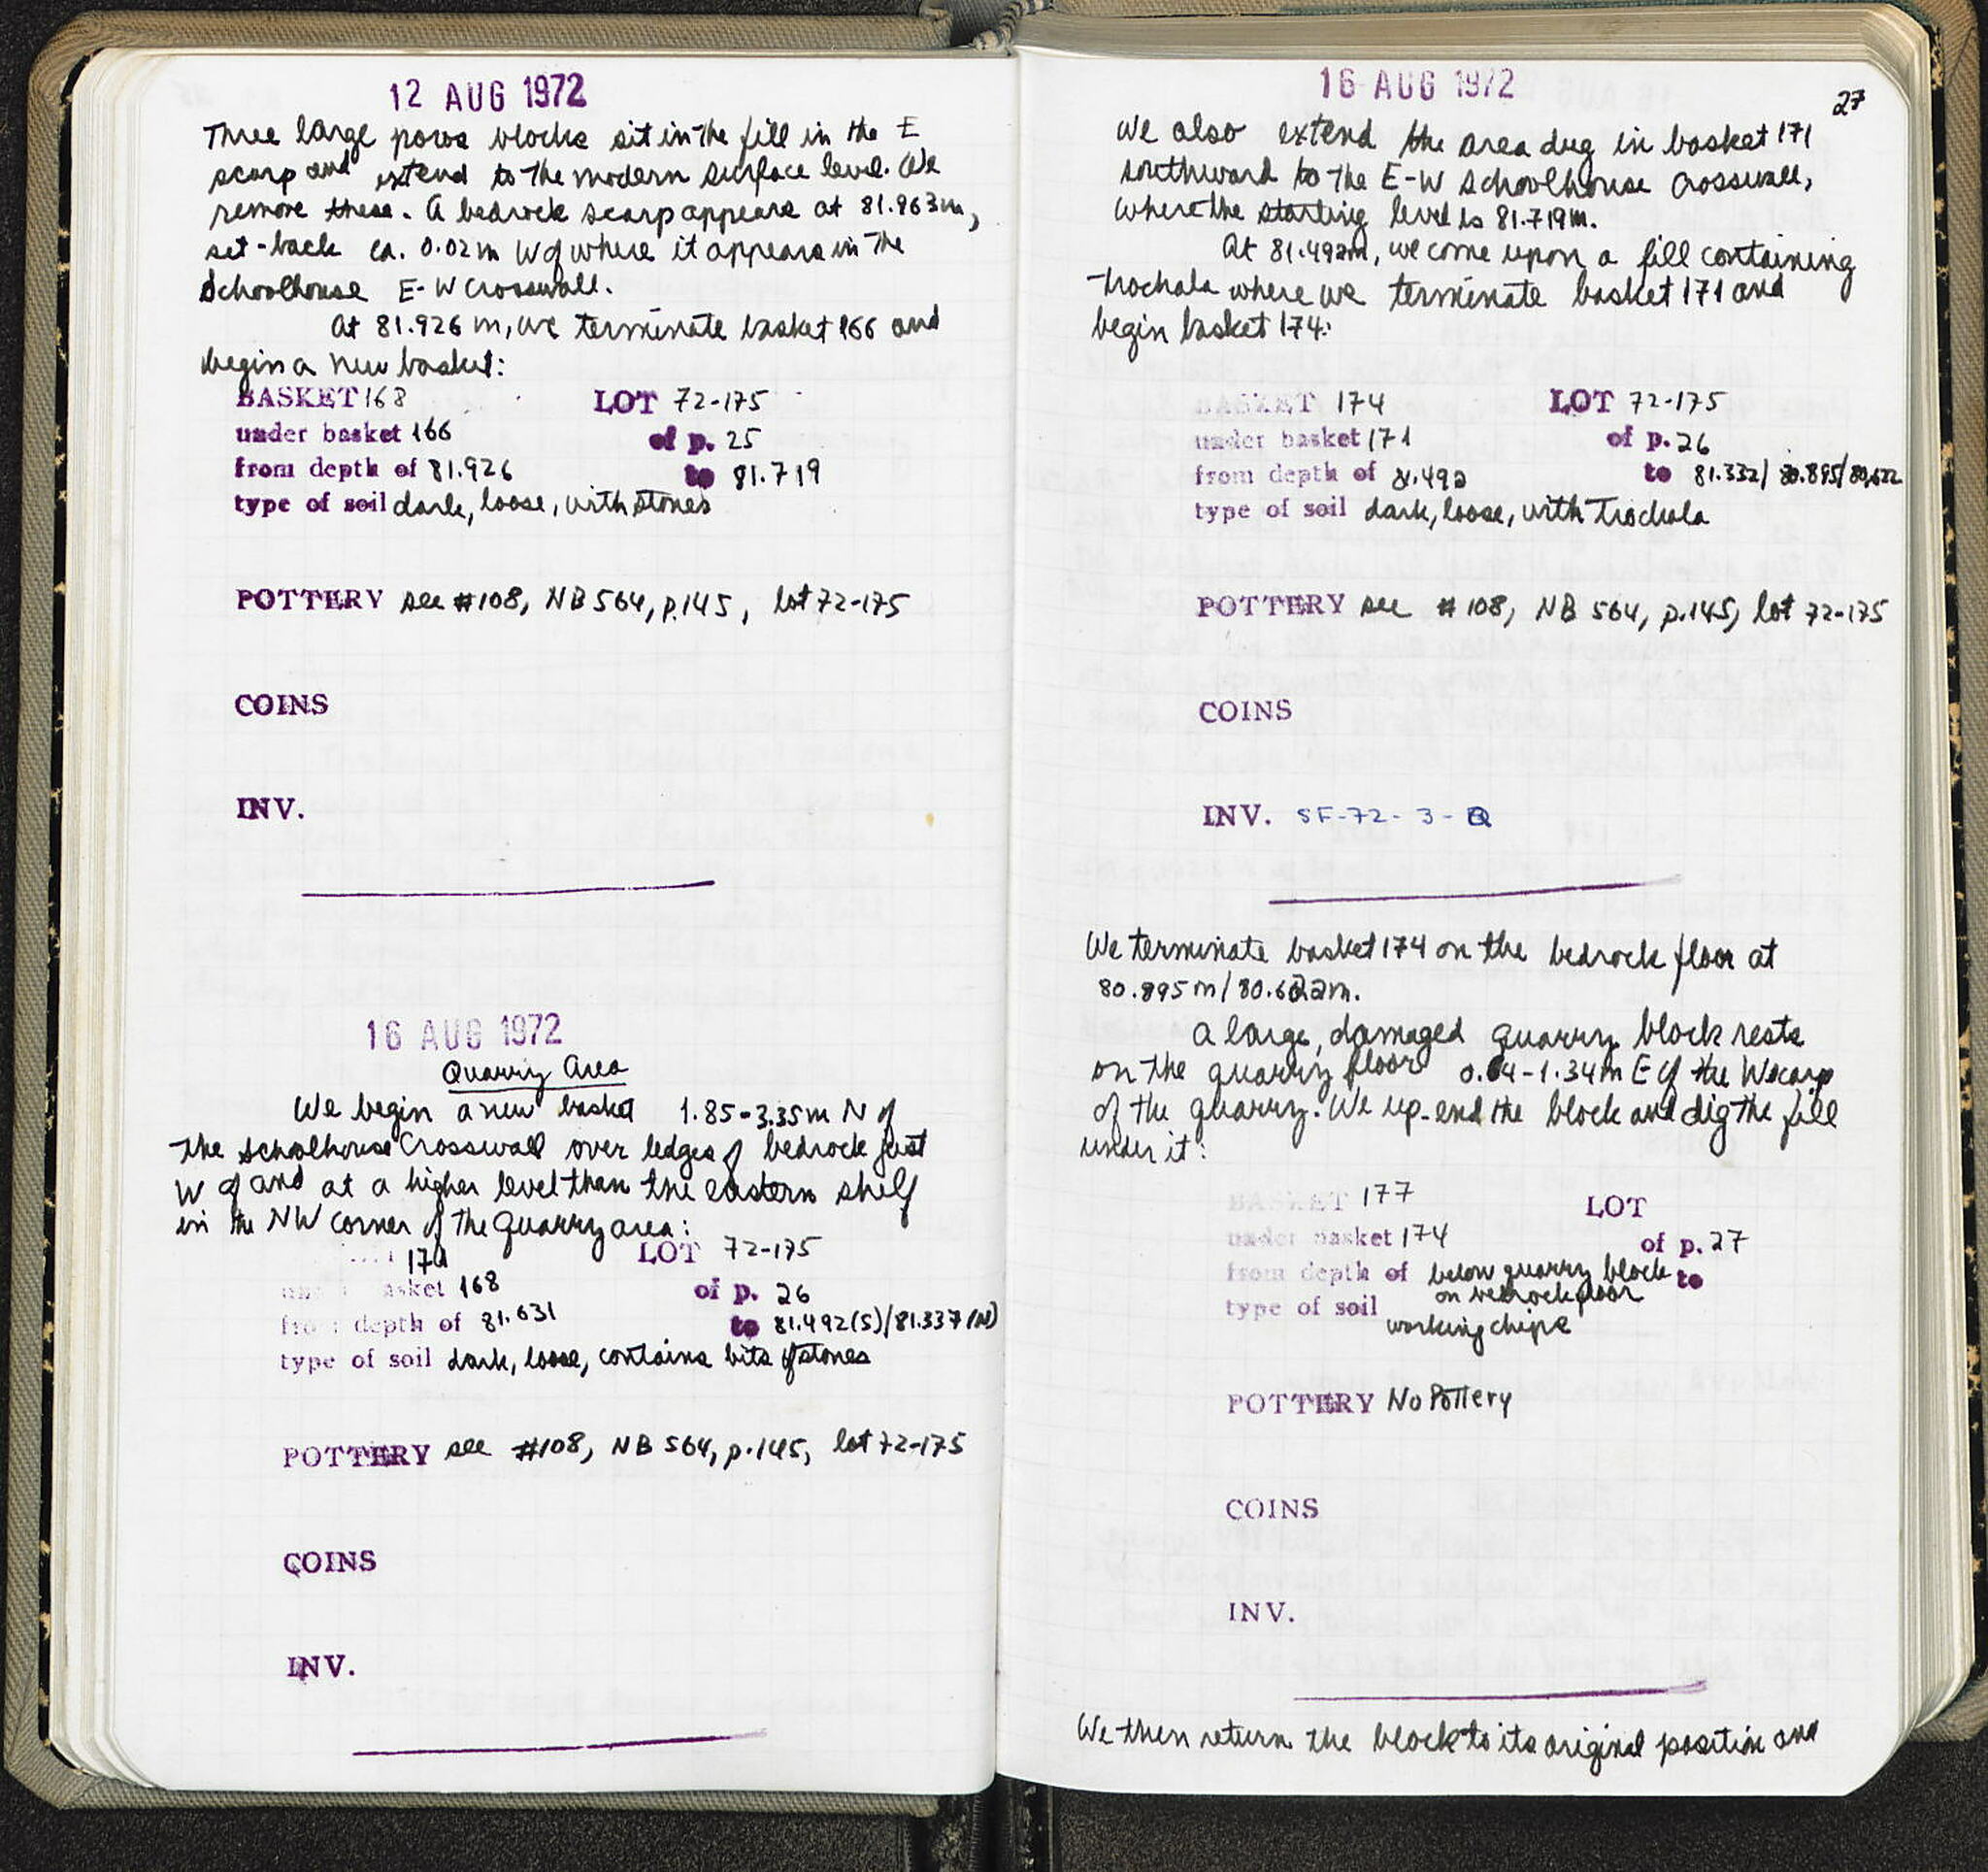 12 AUG 1972
Three large poros blocks sit in the fill in the E
scarp and extend to the modern surface level. We
remove these. A bedrock scarp appears at 81.963m,
set-back ca. 0.02m W of where it appears in the
Schoolhouse E-W Crosswall.
At 81.926 m, we terminate basket 166 and
begin a new basket:
BASKET 168 LOT 72-175
under basket 166 of p. 25
from depth of 81.926 to 81.719
type of soil dark, loose, with stones
POTTERY see #108, NB 564, p.145, lot 72-175
COINS
INV.
16 AUG 1972
Quarry Area
We begin a new basket 1.85-3.35m N of
the Schoolhouse Crosswall over ledges of bedrock just
W of and at a higher level than the eastern shelf
in the NW corner of the Quarry area:
171 LOT 72-175
under basket 168 of p. 26
from depth of 81.631 to 81.492(S)/81.337(N)
type of soil dark, loose, contains bits of stones
POTTERY see #108, NB 564, p.145, lot 72-175
COINS
INV.
16 AUG 1972
27
We also extend the area dug in basket 171
southward to the E-W Schoolhouse Crosswall,
where the starting level is 81.719m.
At 81.492m, we come upon a fill containing
trochala where we terminate basket 171 and
begin basket 174:
BASKET 174 LOT 72-175
under basket 171 of p. 26
from depth of 81.492 to 81.332/80.895/80.622
type of soil dark, loose, with Trochala
POTTERY see #108, NB 564, p.145, lot 72-175
COINS
INV. SF-72-3-
We terminate basket 174 on the bedrock floor at
80.895m/80.622m.
A large, damaged quarry block rests
on the quarry floor 0.64-1.34m E of the W scarp
of the quarry. We up-end the block and dig the fill
under it:
BASKET 177 LOT
under basket 174 of p. 27
from depth of below quarry block to
on bedrock floor
type of soil working chips
POTTERY No Pottery
COINS
INV.
We then return the block to its original position and